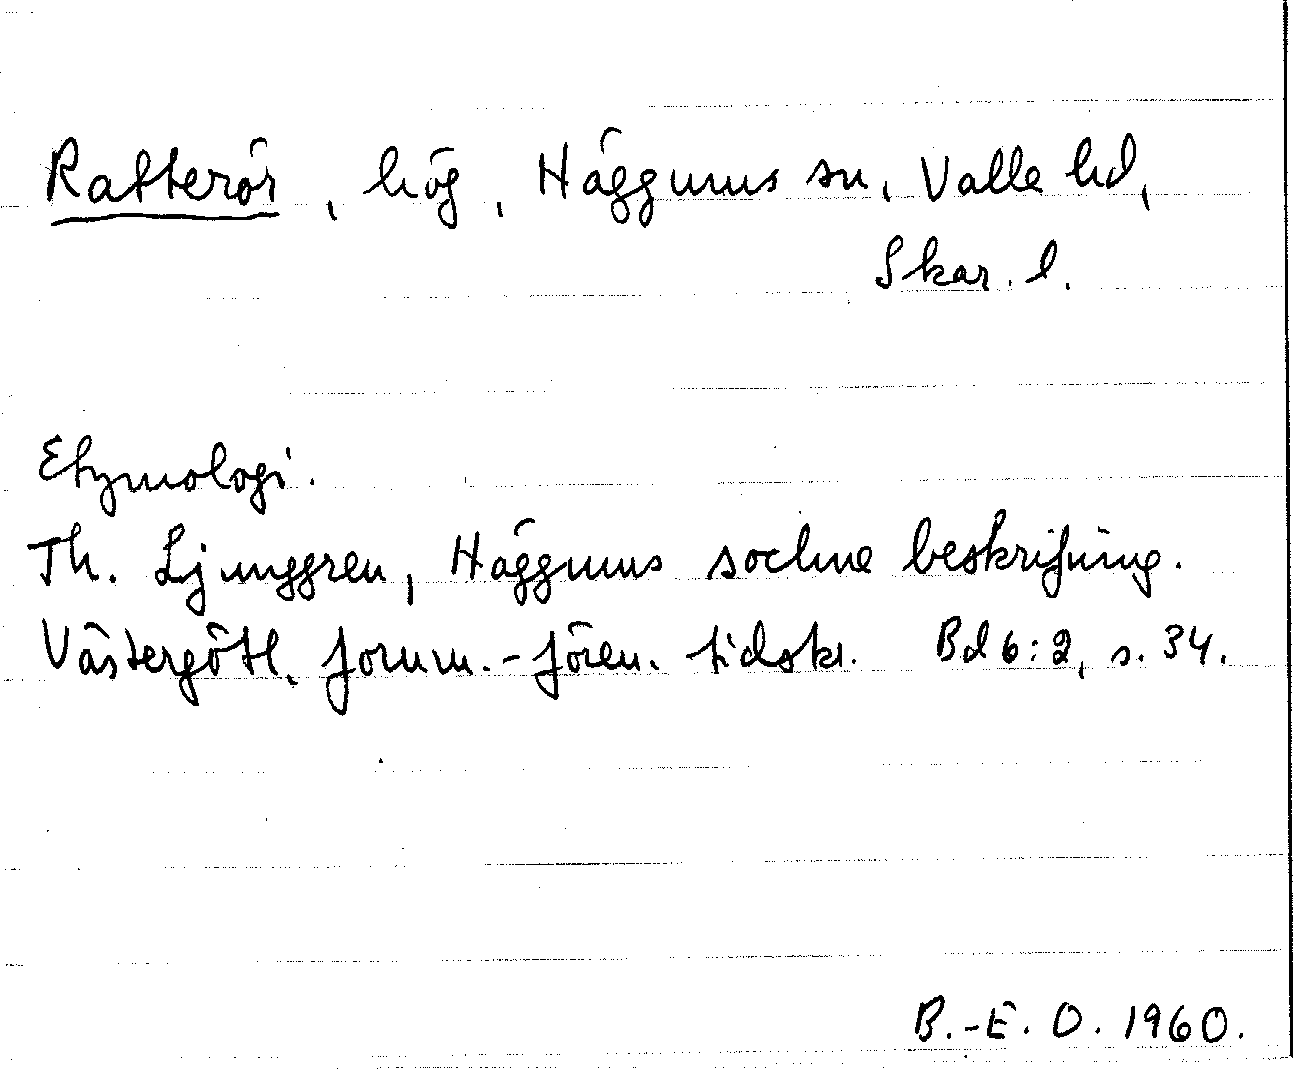 Ratterör, hög, Häggums sn, Valle hd,
Skar. l.
Etymologi.
Th. Ljunggren, Häggums socken beskrifning.
Västergötl. fornm.-fören. tidskr. Bd 6:2, s. 34.
B.-E. O. 1960.